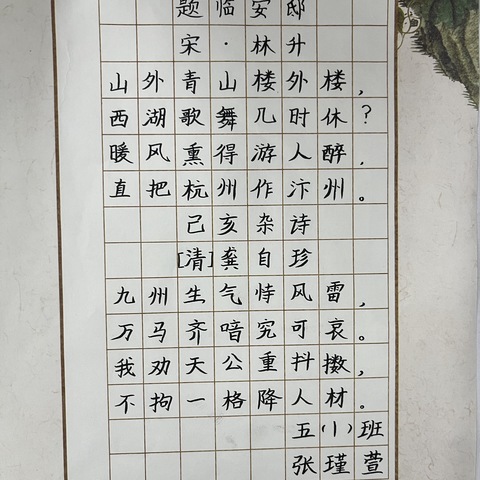 题临安邸
宋·林升
山外青山楼外楼,
西湖歌舞几时休?
暖风熏得游人醉,
直把杭州作汴州。
己亥杂诗
[清]龚自珍
九州生气恃风雷,
万马齐喑究可哀。
我劝天公重抖擞,
不拘一格降人材。
五(1)班
张瑾萱